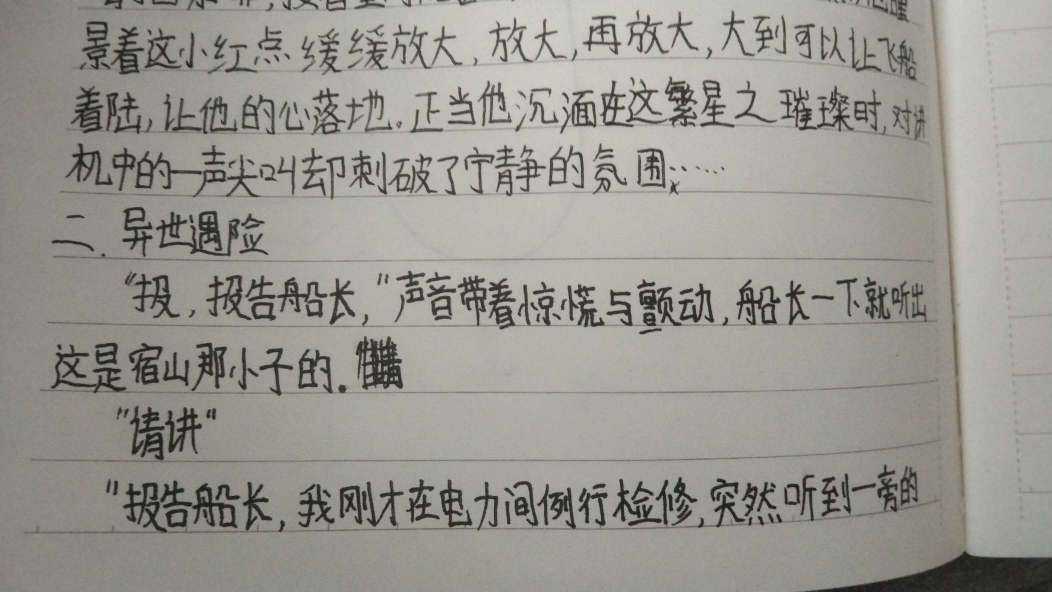 景着这小红点缓缓放大,放大,再放大,大到可以让飞船
着陆,让他的心落地.正当他沉湎在这繁星之璀璨时,对讲
机中的一声尖叫却刺破了宁静的氛围……
二.异世遇险
"报,报告船长,"声音带着惊慌与颤动,船长一下就听出
这是宿山那小子的.
"请讲"
"报告船长,我刚才在电力间例行检修,突然听到一旁的